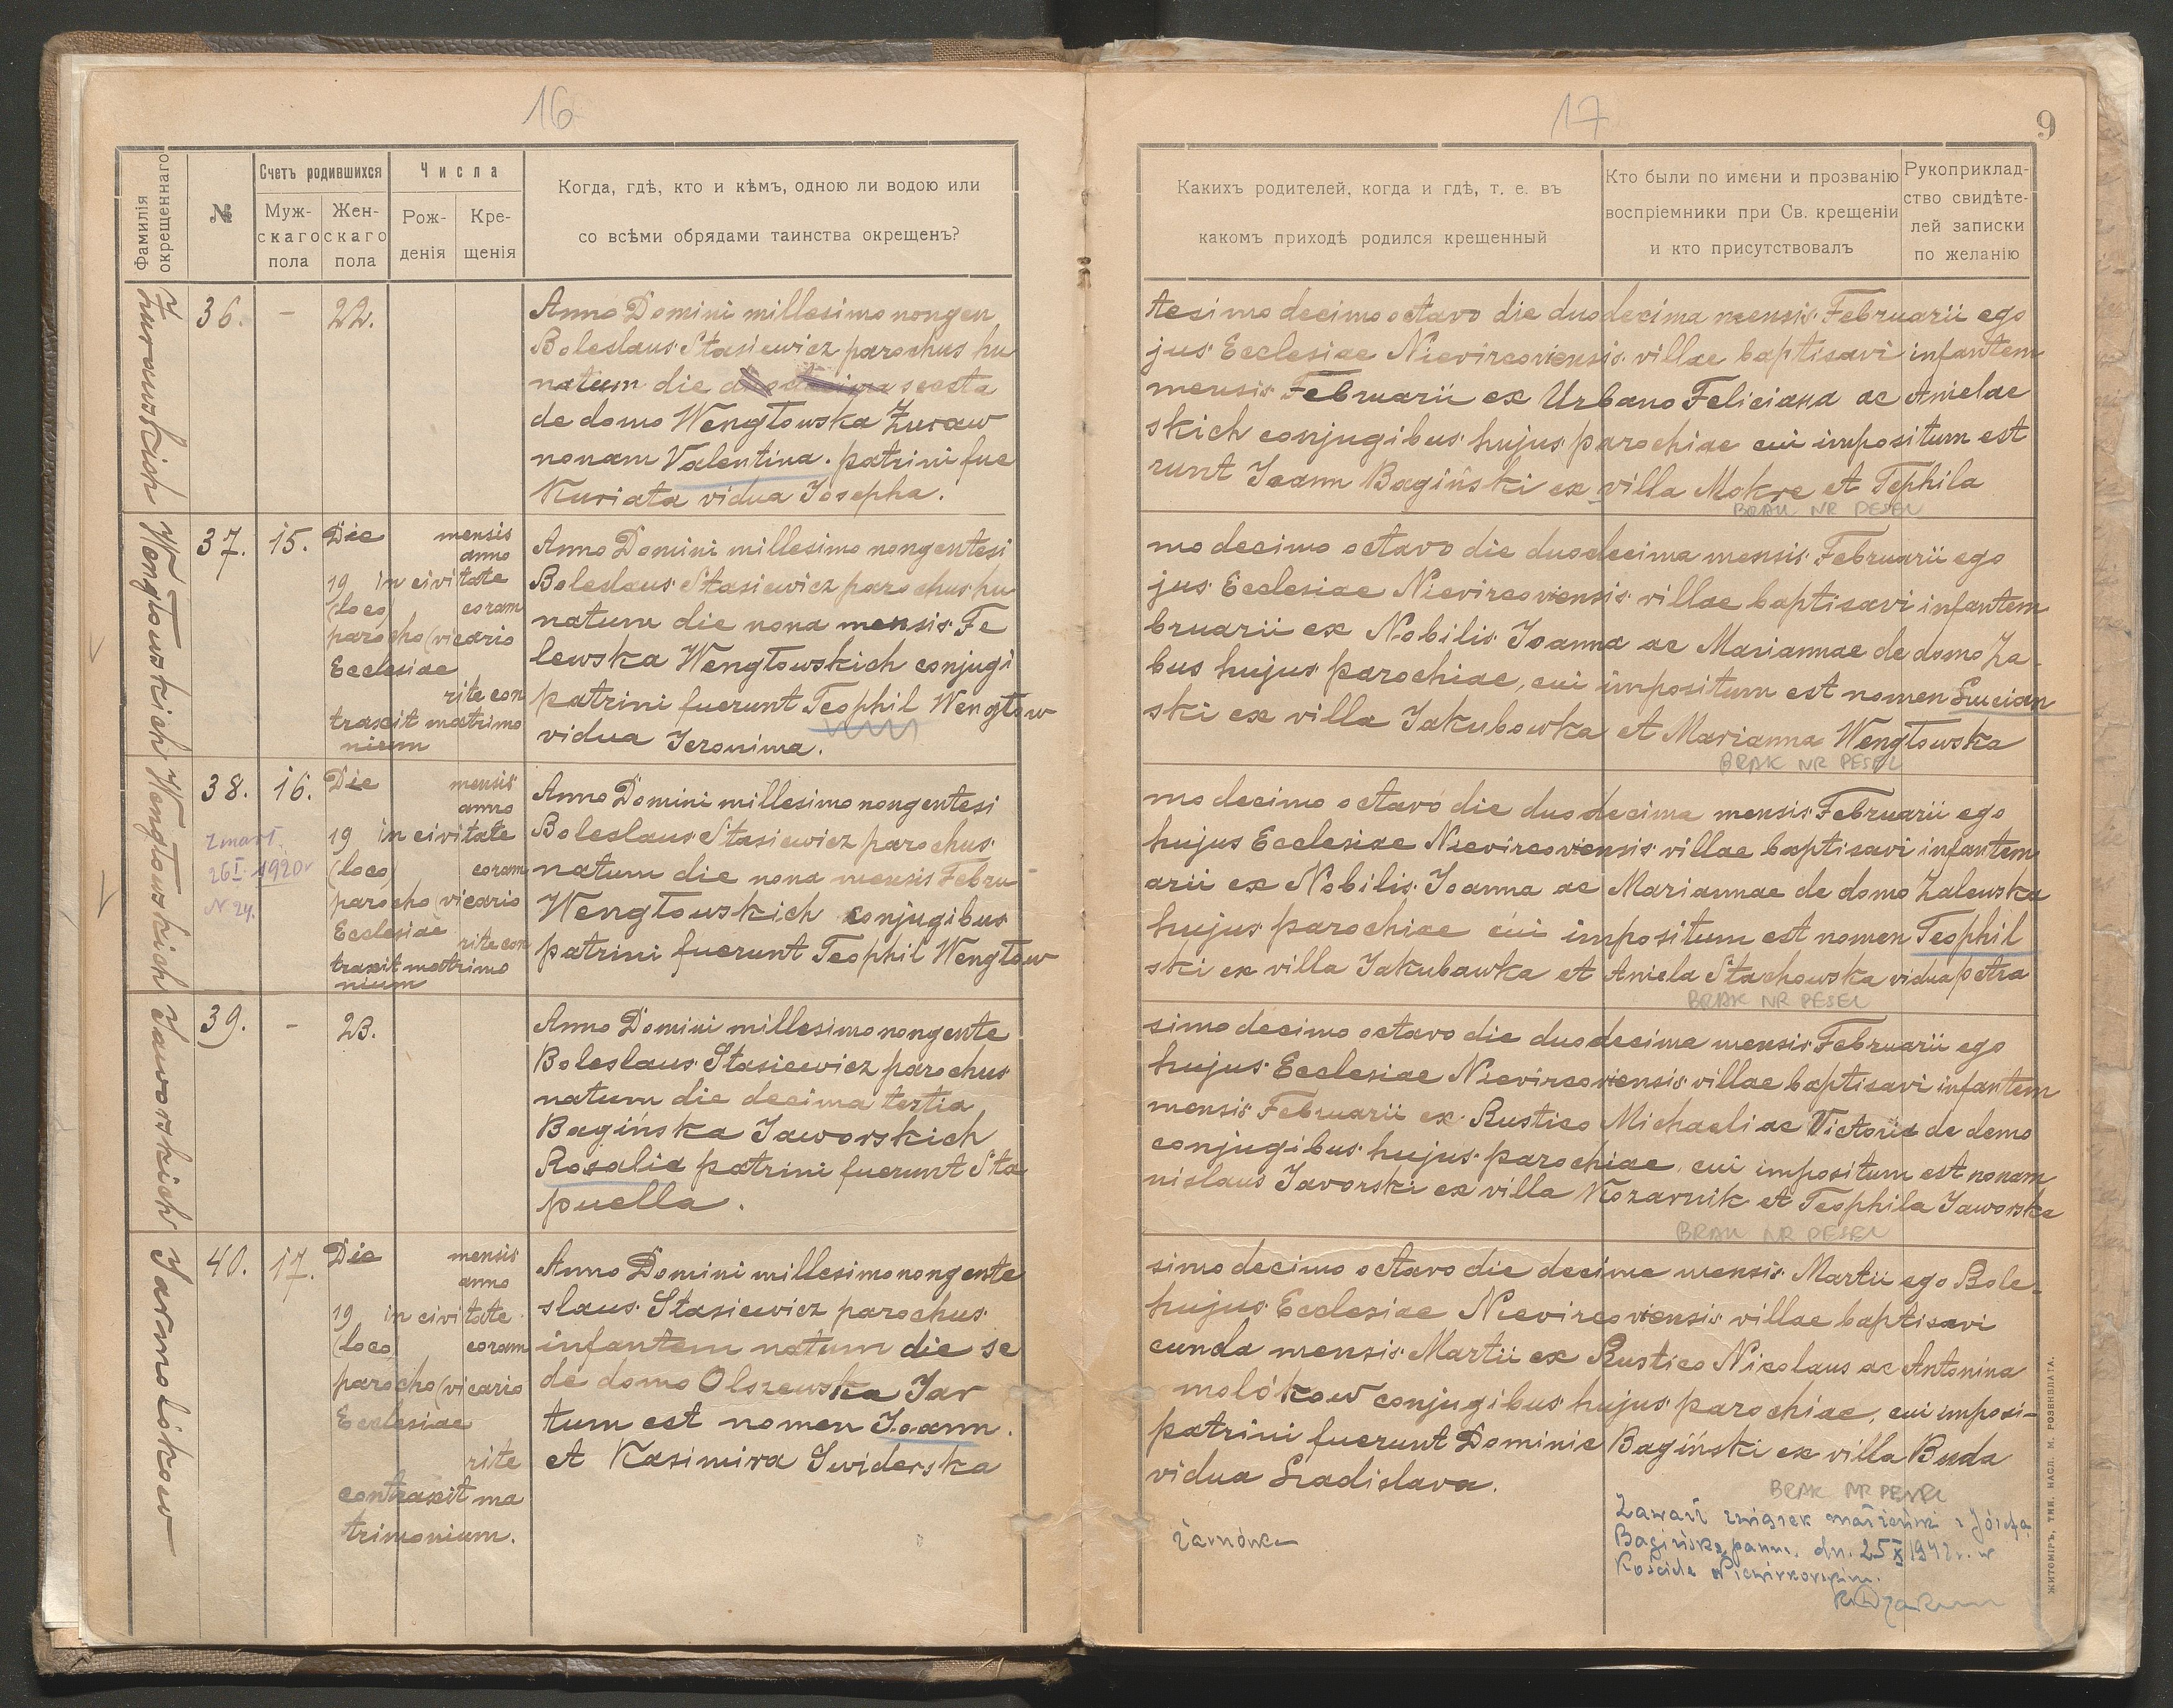 16
Фамилія окрещеннаго
№
Счетъ родившихся
Муж-
скаго
пола
Жен-
скаго
пола
Числа
Рож-
денія
Кре-
щенія
Когда, гдѣ, кто и кѣмъ, одною ли водою или
со всѣми обрядами таинства окрещенъ?
Żurawskich
36. - 22.
Anno Domini millesimo nongen
Boleslaus Stasiewicz parochus hu
natum die sexta
de domo Wengłowska Żuraw
nonam Valentina. patrini fue
Kuriata vidua Josepha.
Wengłowskich
37. 15.
Die mensis
anno
19 in civitate
(loco) coram
parocho (vicario
Ecclesiae
rite con
traxit matrimo
nium
Anno Domini millesimo nongentesi
Boleslaus Stasiewicz parochus hu
natum die nona mensis Fe
lewska Wengłowskich conjugi
patrini fuerunt Teophil Wengłow
vidua Jeronima.
Wengłowskich
38. 16.
Zmarł.
26 I 1920 r
N 24.
Die mensis
anno
19 in civitate
(loco) coram
parocho (vicario
Ecclesiae
rite con
traxit matrimo
nium
Anno Domini millesimo nongentesi
Boleslaus Stasiewicz parochus
natum die nona mensis Febru
Wengłowskich conjugibus
patrini fuerunt Teophil Wengłow
Jaworskich
39. - 23.
Anno Domini millesimo nongente
Boleslaus Stasiewicz parochus
natum die decima tertia
Bagińska Jaworskich
Rosalia patrini fuerunt Sta
puella.
Jarmolókow
40. 17.
Die mensis
anno
19 in civitate
(loco) coram
parocho (vicario
Ecclesiae
rite
contraxit ma
trimonium.
Anno Domini millesimo nongente
slaus Stasiewicz parochus
infantem natum die se
de domo Olszewska Jar
tum est nomen Joann.
et Kasimira Swiderska
17
9
Какихъ родителей, когда и гдѣ, т. е. въ
какомъ приходѣ родился крещенный
Кто были по имени и прозванію
воспріемники при Св. крещеніи
и кто присутствовалъ
Рукоприклад-
ство свидѣте-
лей записки
по желанію
tesimo decimo octavo die duodecima mensis Februarii ego
jus Ecclesiae Niewircoviensis villae baptisavi infantem
mensis Februarii ex Urbano Feliciana ac Anielae
skich conjugibus hujus parochiae cui impositum est
runt Joann Bagiński ex villa Mokre et Tephila
BRAK NR PESEL
mo decimo octavo die duodecima mensis Februarii ego
jus Ecclesiae Niewircoviensis villae baptisavi infantem
bruarii ex Nobilis Joanna ac Mariannae de domo Za-
bus hujus parochiae, cui impositum est nomen Lucian
ski ex villa Jakubowka et Marianna Wengłowska
BRAK NR PESEL
mo decimo octavo die duodecima mensis Februarii ego
hujus Ecclesiae Niewircoviensis villae baptisavi infantem
arii ex Nobilis Joanna ac Mariannae de domo Zalewska
hujus parochiae cui impositum est nomen Teophil
ski ex villa Jakubawka et Aniela Stachowska vidua petra
BRAK NR PESEL
simo decimo octavo die duodecima mensis Februarii ego
hujus Ecclesiae Niewircoviensis villae baptisavi infantem
mensis Februarii ex Rustico Michaeli ac Victoria de domo
conjugibus hujus parochiae, cui impositum est nonam
nislaus Javorski ex villa Kozarnik et Teophila Jaworska
BRAK NR PESEL
simo decimo octavo die decima mensis Martii ego Bole-
hujus Ecclesiae Niewircoviensis villae baptisavi
cunda mensis Martii ex Rustico Nikolaus ac Antonina
molókow conjugibus hujus parochiae, cui imposi-
patrini fuerunt Dominic Bagiński ex villa Buda
vidua Ladislava.
BRAK NR PESEL
Zawarł związek małżeński z Józefą
Bagińską pann. dn. 25 X 1942 r. w
Kościele Niewirkowskim.
ЖИТОМІРЪ, ТИП. НАСЛ. М. РОЗЕНБЛАТА.